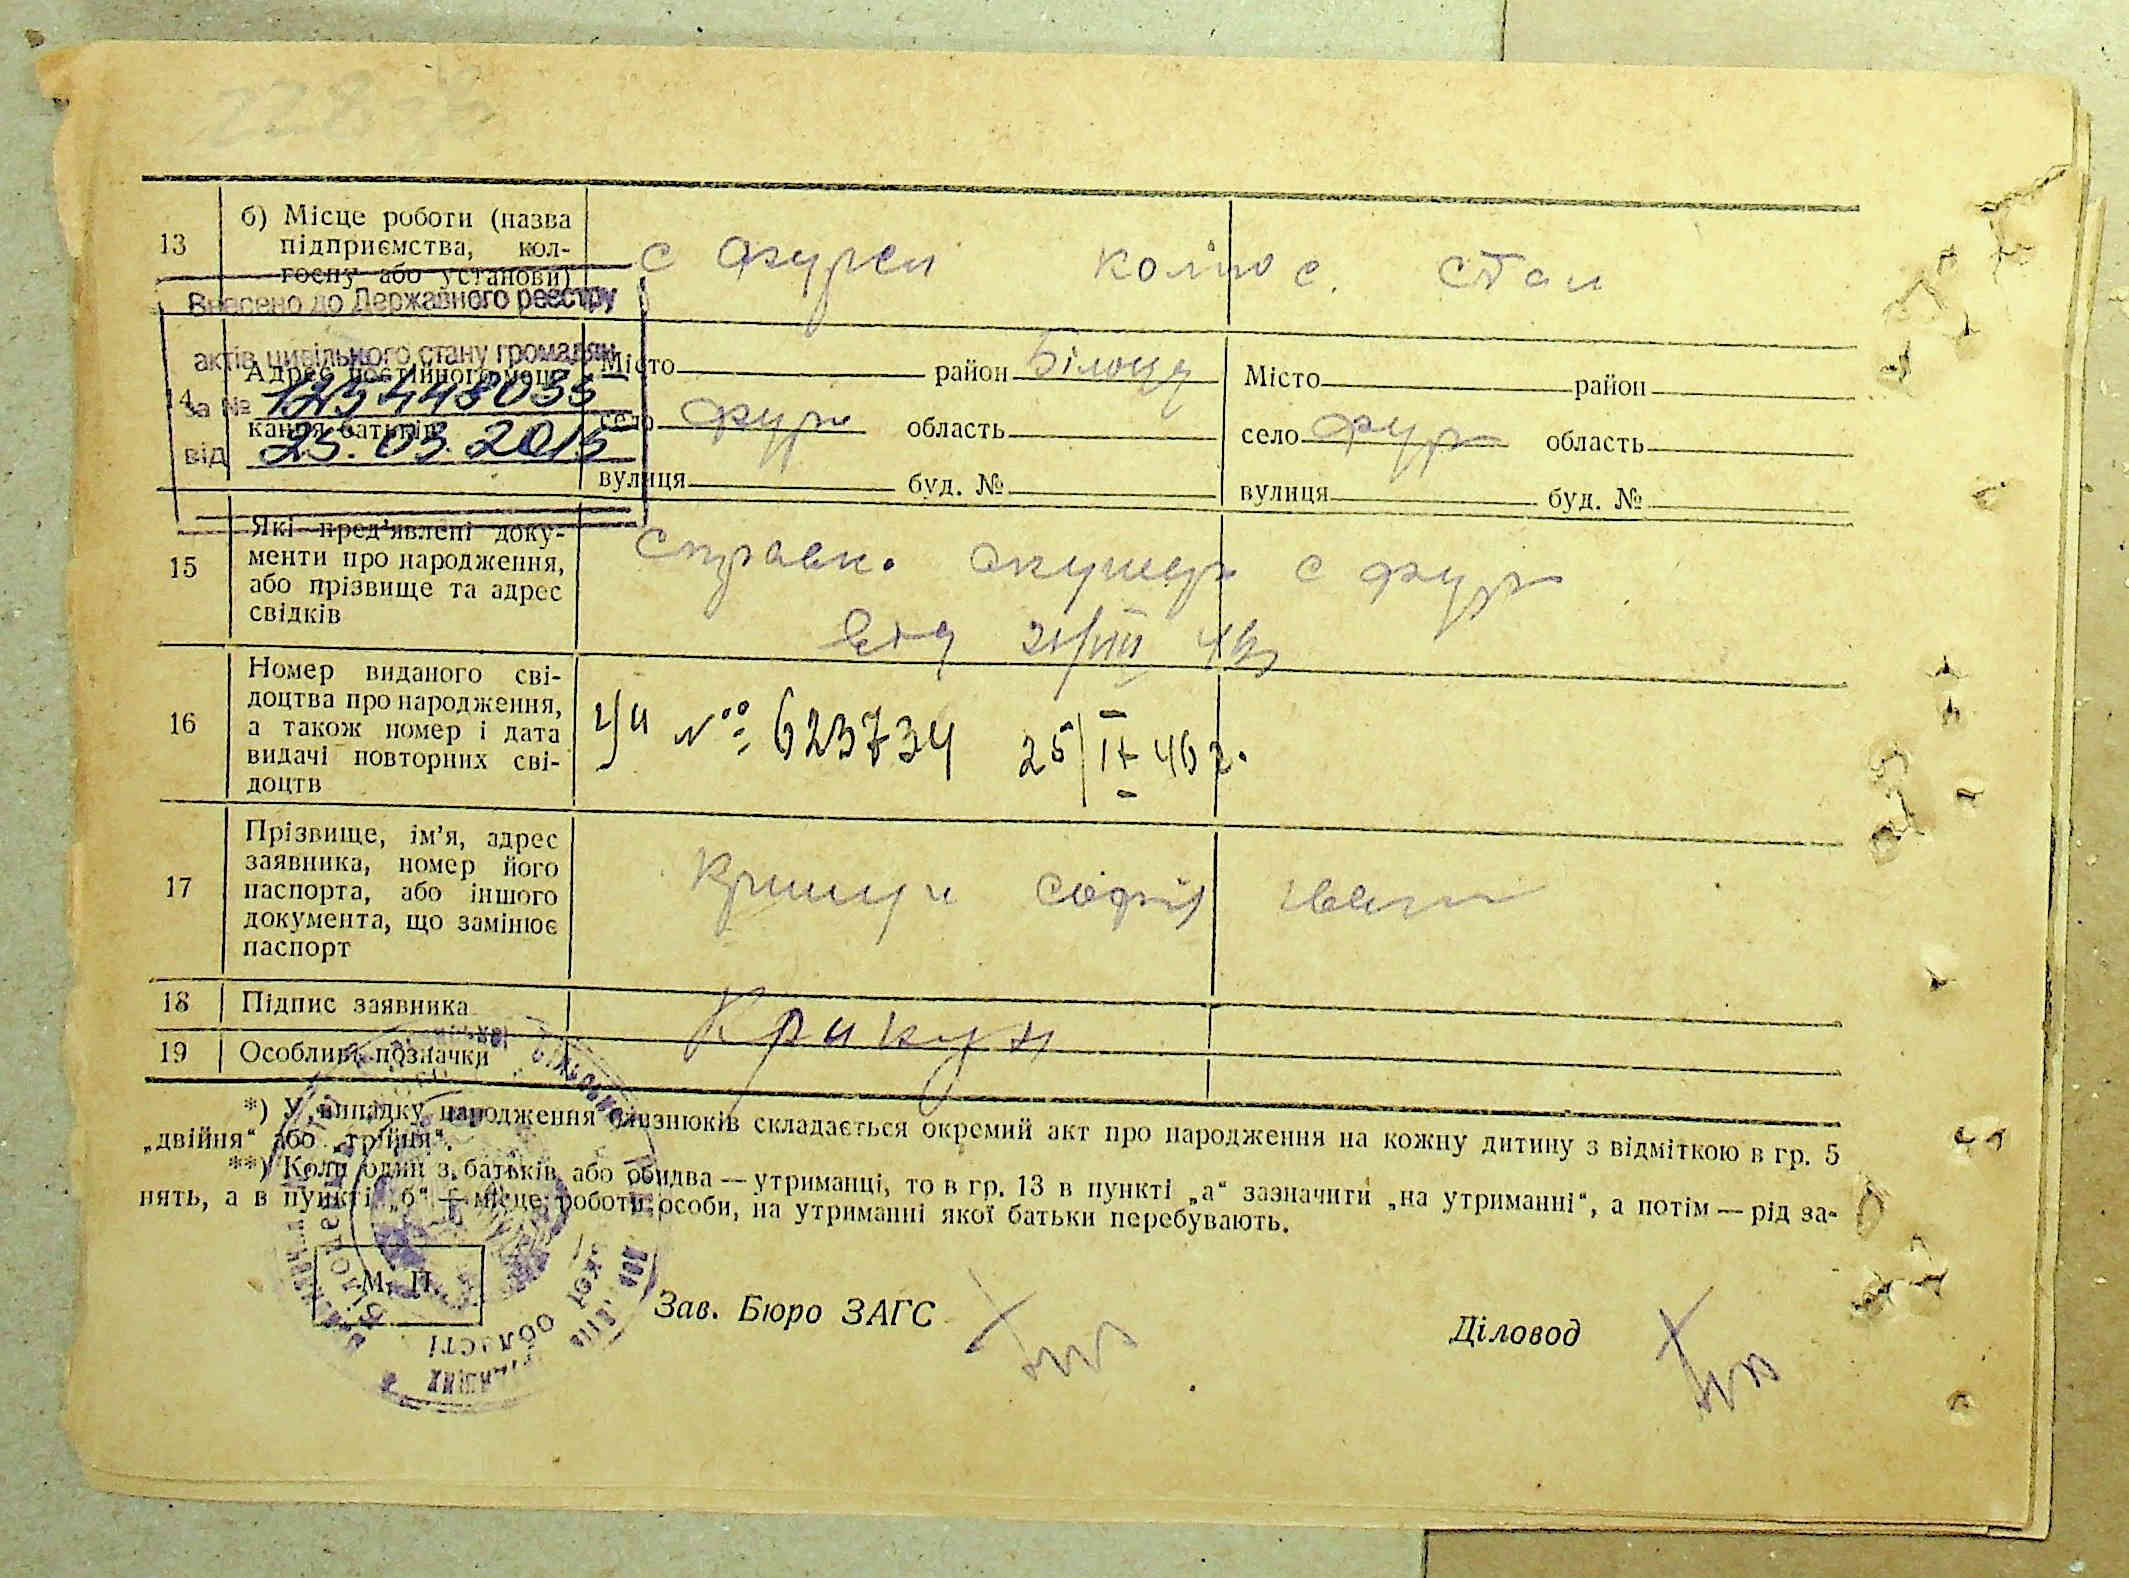 13
б) Місце роботи (назва
підприємства, кол-
госпу або установи)
с Фурси колгос. Стал
Внесено до Державного реєстру
актів цивільного стану громадян
за № 125448035
від 25.03.2015
14
Адрес постійного меш-
кання батьків
Місто район Білоцер
село Фурс область
вулиця буд. №
Місто район
село Фурс область
вулиця буд. №
15
Які пред'явлені доку-
менти про народження,
або прізвище та адрес
свідків
Справк. акушер с Фурс
від 21/VIII 46
16
Номер виданого сві-
доцтва про народження,
а також номер і дата
видачі повторних сві-
доцтв
№ 623734 25/IX 46 г.
17
Прізвище, ім'я, адрес
заявника, номер його
паспорта, або іншого
документа, що замінює
паспорт
Крикун Софія Іван
18
Підпис заявника
Крикун
19
Особливі позначки
*) У випадку народження близнюків складається окремий акт про народження на кожну дитину з відміткою в гр. 5
„двійня“ або „трійня“.
**) Коли один з батьків або обидва — утриманці, то в гр. 13 в пункті „а“ зазначити „на утриманні“, а потім — рід за-
нять, а в пункті „б“ — місце роботи особи, на утриманні якої батьки перебувають.
М. П.
Зав. Бюро ЗАГС
Діловод
області